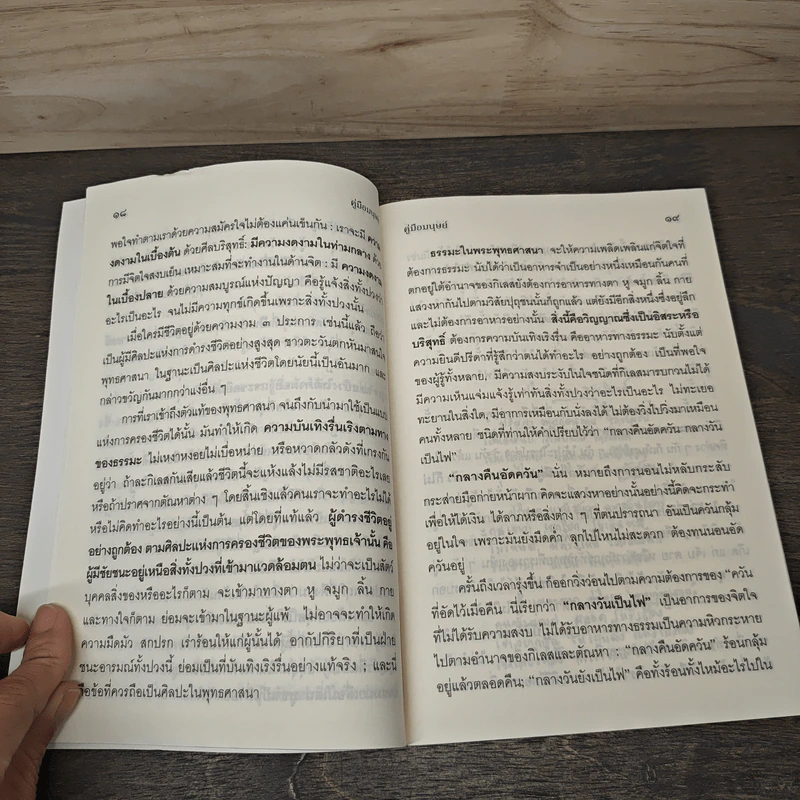 ๑๘
คู่มือมนุษย์
พอใจทำตามเราด้วยความสมัครใจไม่ต้องแค่นเข็นกัน : เราจะมี ความ
งดงามในเบื้องต้น ด้วยศีลบริสุทธิ์: มีความงดงามในท่ามกลาง ด้วย
การมีจิตใจสงบเย็น เหมาะสมที่จะทำงานในด้านจิต : มี ความงดงาม
ในเบื้องปลาย ด้วยความสมบูรณ์แห่งปัญญา คือรู้แจ้งสิ่งทั้งปวงว่า
อะไรเป็นอะไร จนไม่มีความทุกข์เกิดขึ้นเพราะสิ่งทั้งปวงนั้น
เมื่อใครมีชีวิตอยู่ด้วยความงาม ๓ ประการ เช่นนี้แล้ว ถือว่า
เป็นผู้มีศิลปะแห่งการดำรงชีวิตอย่างสูงสุด ชาวตะวันตกหันมาสนใจ
พุทธศาสนา ในฐานะเป็นศิลปะแห่งชีวิตโดยนัยนี้เป็นอันมาก และ
กล่าวขวัญกันมากกว่าแง่อื่น ๆ
การที่เราเข้าถึงตัวแท้ของพุทธศาสนา จนถึงกับนำมาใช้เป็นแบบ
แห่งการครองชีวิตได้นั้น มันทำให้เกิด ความบันเทิงรื่นเริงตามทาง
ของธรรมะ ไม่เหงาหงอยไม่เบื่อหน่าย หรือหวาดกลัวดังที่เกรงกัน
อยู่ว่า ถ้าละกิเลสกันเสียแล้วชีวิตนี้จะแห้งแล้งไม่มีรสชาติอะไรเลย
หรือถ้าปราศจากตัณหาต่าง ๆ โดยสิ้นเชิงแล้วคนเราจะทำอะไรไม่ได้
หรือไม่คิดทำอะไรอย่างนี้เป็นต้น แต่โดยที่แท้แล้ว ผู้ดำรงชีวิตอยู่
อย่างถูกต้อง ตามศิลปะแห่งการครองชีวิตของพระพุทธเจ้านั้น คือ
ผู้มีชัยชนะอยู่เหนือสิ่งทั้งปวงที่เข้ามาแวดล้อมตน ไม่ว่าจะเป็นสัตว์
บุคคลสิ่งของหรืออะไรก็ตาม จะเข้ามาทางตา หู จมูก ลิ้น กาย
และทางใจก็ตาม ย่อมจะเข้ามาในฐานะผู้แพ้ ไม่อาจจะทำให้เกิด
ความมืดมัว สกปรก เร่าร้อนให้แก่ผู้นั้นได้ อากัปกิริยาที่เป็นฝ่าย
ชนะอารมณ์ทั้งปวงนี้ ย่อมเป็นที่บันเทิงเริงรื่นอย่างแท้จริง ; และนี่
คือข้อที่ควรถือเป็นศิลปะในพุทธศาสนา
คู่มือมนุษย์
๑๙
ธรรมะในพระพุทธศาสนา จะให้ความเพลิดเพลินแก่จิตใจที่
ต้องการธรรมะ นับได้ว่าเป็นอาหารจำเป็นอย่างหนึ่งเหมือนกันคนที่
ตกอยู่ใต้อำนาจของกิเลสต้องการอาหารทางตา หู จมูก ลิ้น กาย
แสวงหากันไปตามวิสัยปุถุชนนั้นก็ถูกแล้ว แต่ยังมีอีกสิ่งหนึ่งซึ่งอยู่ลึก
และไม่ต้องการอาหารอย่างนั้น สิ่งนี้คือวิญญาณซึ่งเป็นอิสระหรือ
บริสุทธิ์ ต้องการความบันเทิงเริงรื่น คืออาหารทางธรรมะ นับตั้งแต่
ความยินดีปรีดาที่รู้สึกว่าตนได้ทำอะไร อย่างถูกต้อง เป็นที่พอใจ
ของผู้รู้ทั้งหลาย, มีความสงบระงับในใจชนิดที่กิเลสมารบกวนไม่ได้
มีความเห็นแจ่มแจ้งรู้เท่าทันสิ่งทั้งปวงว่าอะไรเป็นอะไร ไม่ทะเยอ
ทะยานในสิ่งใด, มีอาการเหมือนกับนั่งลงได้ ไม่ต้องวิ่งไปวิ่งมาเหมือน
คนทั้งหลาย ชนิดที่ท่านให้คำเปรียบไว้ว่า “กลางคืนอัดควัน กลางวัน
เป็นไฟ”
“กลางคืนอัดควัน” นั้น หมายถึงการนอนไม่หลับกระสับ
กระส่ายมือก่ายหน้าผาก คิดจะแสวงหาอย่างนั้นอย่างนี้คิดจะกระทำ
เพื่อให้ได้เงิน ได้ลาภหรือสิ่งต่าง ๆ ที่ตนปรารถนา อันเป็นควันกลุ้ม
อยู่ในใจ เพราะมันยังมืดค่ำ ลุกไปไหนไม่สะดวก ต้องทนนอนอัด
ควันอยู่
ครั้นถึงเวลารุ่งขึ้น ก็ออกวิ่งว่อนไปตามความต้องการของ “ควัน
ที่อัดไว้เมื่อคืน นี่เรียกว่า “กลางวันเป็นไฟ” เป็นอาการของจิตใจ
ที่ไม่ได้รับความสงบ ไม่ได้รับอาหารทางธรรมเป็นความหิวกระหาย
ไปตามอำนาจของกิเลสและตัณหา : “กลางคืนอัดควัน” ร้อนกลุ้ม
อยู่แล้วตลอดคืน; “กลางวันยังเป็นไฟ” คือทั้งร้อนทั้งไหม้อะไรไปใน